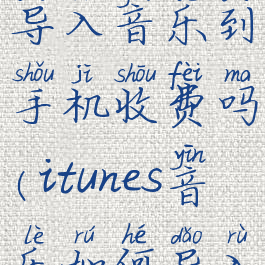 导入音乐到
shǒu jī shōu fèi ma
手机收费吗
yīn
(itunes音
lè rú hé dǎo rù
乐如何导入